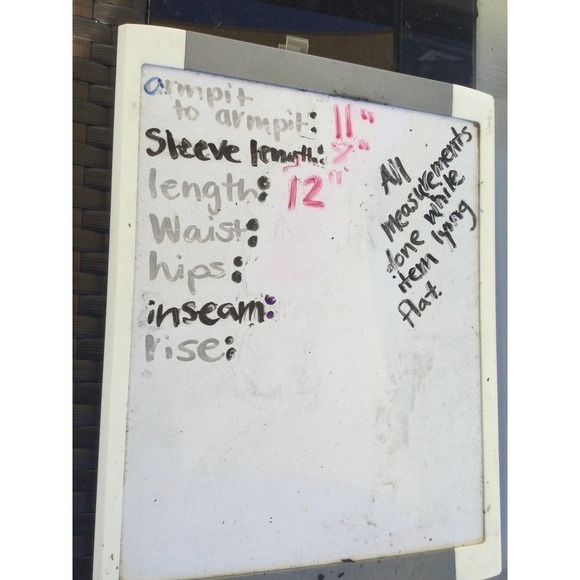 armpit
to armpit: 11"
Sleeve length: 2"
length: 12"
Waist:
hips:
inseam:
rise:
All
measurements
done while
item lying
flat.